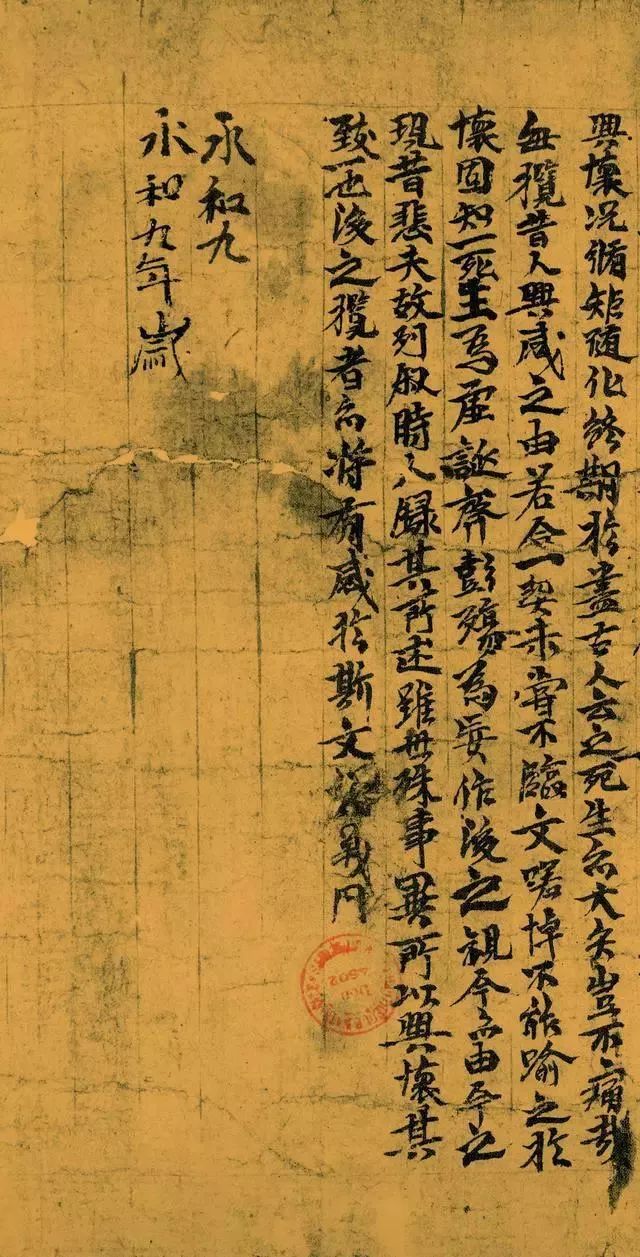 興懷况脩矩随化終期於盡古人云之死生亦大矣豈不痛哉
每攬昔人興感之由若合一契未甞不臨文嗟悼不能喻之於
懷固知一死生為虛誕齊彭殤為妄作後之視今亦由今之
現昔悲夫故列叙時人録其所述雖世殊事異所以興懷其
致一也後之攬者亦将有感於斯文
永和九
永和九年歲